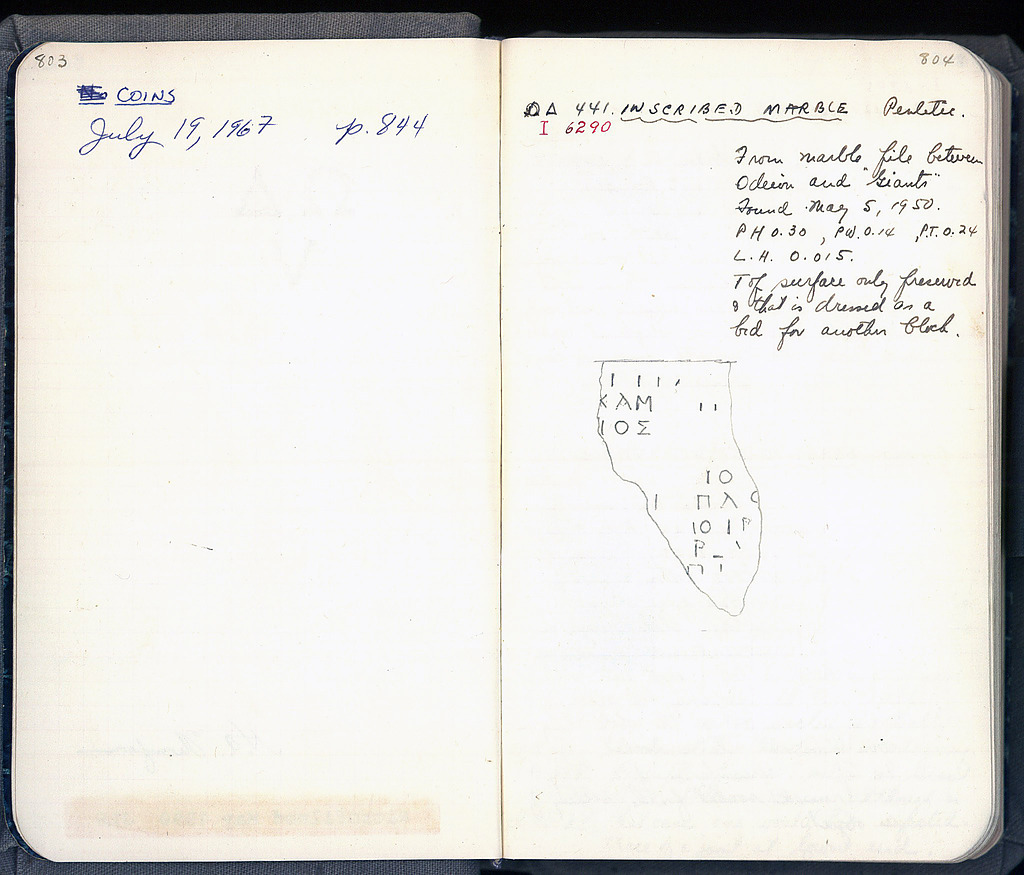 803
COINS
July 19, 1967 p. 844
804
ΩΔ 441. INSCRIBED MARBLE Pentelic.
I 6290
From marble pile between
Odeion and "Giants"
Found May 5, 1950.
PH 0.30, PW. 0.14, P.T. 0.24
L.H. 0.015.
Top surface only preserved
& that is dressed as a
bed for another block.
Ι Ι Ι
ΚΑΜ Ι Ι
ΙΟΣ
ΙΟ
Ι ΠΛC
ΙΟ ΙΡ
Ρ
Π